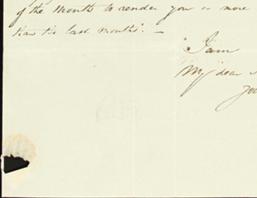 of the Month to render you a more
than the last month's. —
I am
My dear